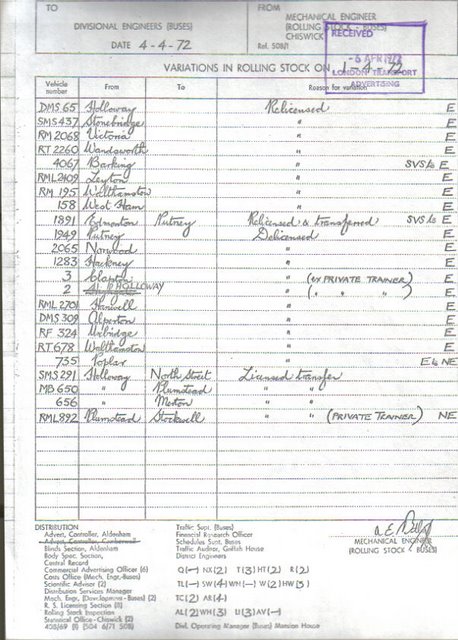 TO
DIVISIONAL ENGINEERS (BUSES)
DATE 4-4-72
FROM
MECHANICAL ENGINEER
(ROLLING STOCK - BUSES)
CHISWICK
Ref. 508/1
RECEIVED
-6 APR 1972
LONDON TRANSPORT
ADVERTISING
VARIATIONS IN ROLLING STOCK ON 1-4-72
Vehicle number From To Reason for variation
DMS 65 Holloway Relicensed E
SMS 437 Stonebridge " E
RM 2068 Victoria " E
RT 2260 Wandsworth " E
4067 Barking " SVS to E
RML 2409 Leyton " E
RM 195 Walthamstow " E
158 West Ham " E
1891 Edmonton Putney Relicensed & transferred SVS to E
1949 Putney Delicensed E
2065 Norwood " E
1283 Hackney " E
3 Clapton " (ex PRIVATE TRAINER) E
2 HOLLOWAY " ( " " " ) E
RML 2701 Hanwell " E
DMS 309 Alperton " E
RF 324 Uxbridge " E
RT 678 Walthamstow " E
735 Poplar " E to NE
SMS 291 Holloway North Street Licensed transfer
MB 650 " Plumstead " "
656 " Merton " "
RML 892 Plumstead Stockwell " " (PRIVATE TRAINER) NE
MECHANICAL ENGINEER
(ROLLING STOCK - BUSES)
DISTRIBUTION
Advert. Controller, Aldenham
Advert. Controller, Camberwell
Blinds Section, Aldenham
Body Spec. Section,
Central Record
Commercial Advertising Officer (6)
Costs Office (Mech. Engr.-Buses)
Scientific Adviser (2)
Distribution Services Manager
Mech. Engr. (Development - Buses) (2)
R. S. Licensing Section (8)
Rolling Stock Inspection
Statistical Office - Chiswick (2)
408/69 (I) (504 6/71 50B)
Traffic Supt. (Buses)
Financial Research Officer
Schedules Supt. Buses
Traffic Auditor, Griffith House
District Engineers
Q(-) NX(2) T(3) HT(2) R(2)
TL(-) SW(4) WH(-) W(2) HW(3)
TC(2) AR(4)
AL(2) WH(3) U(3) AV(-)
Divl. Operating Manager (Buses) Mansion House